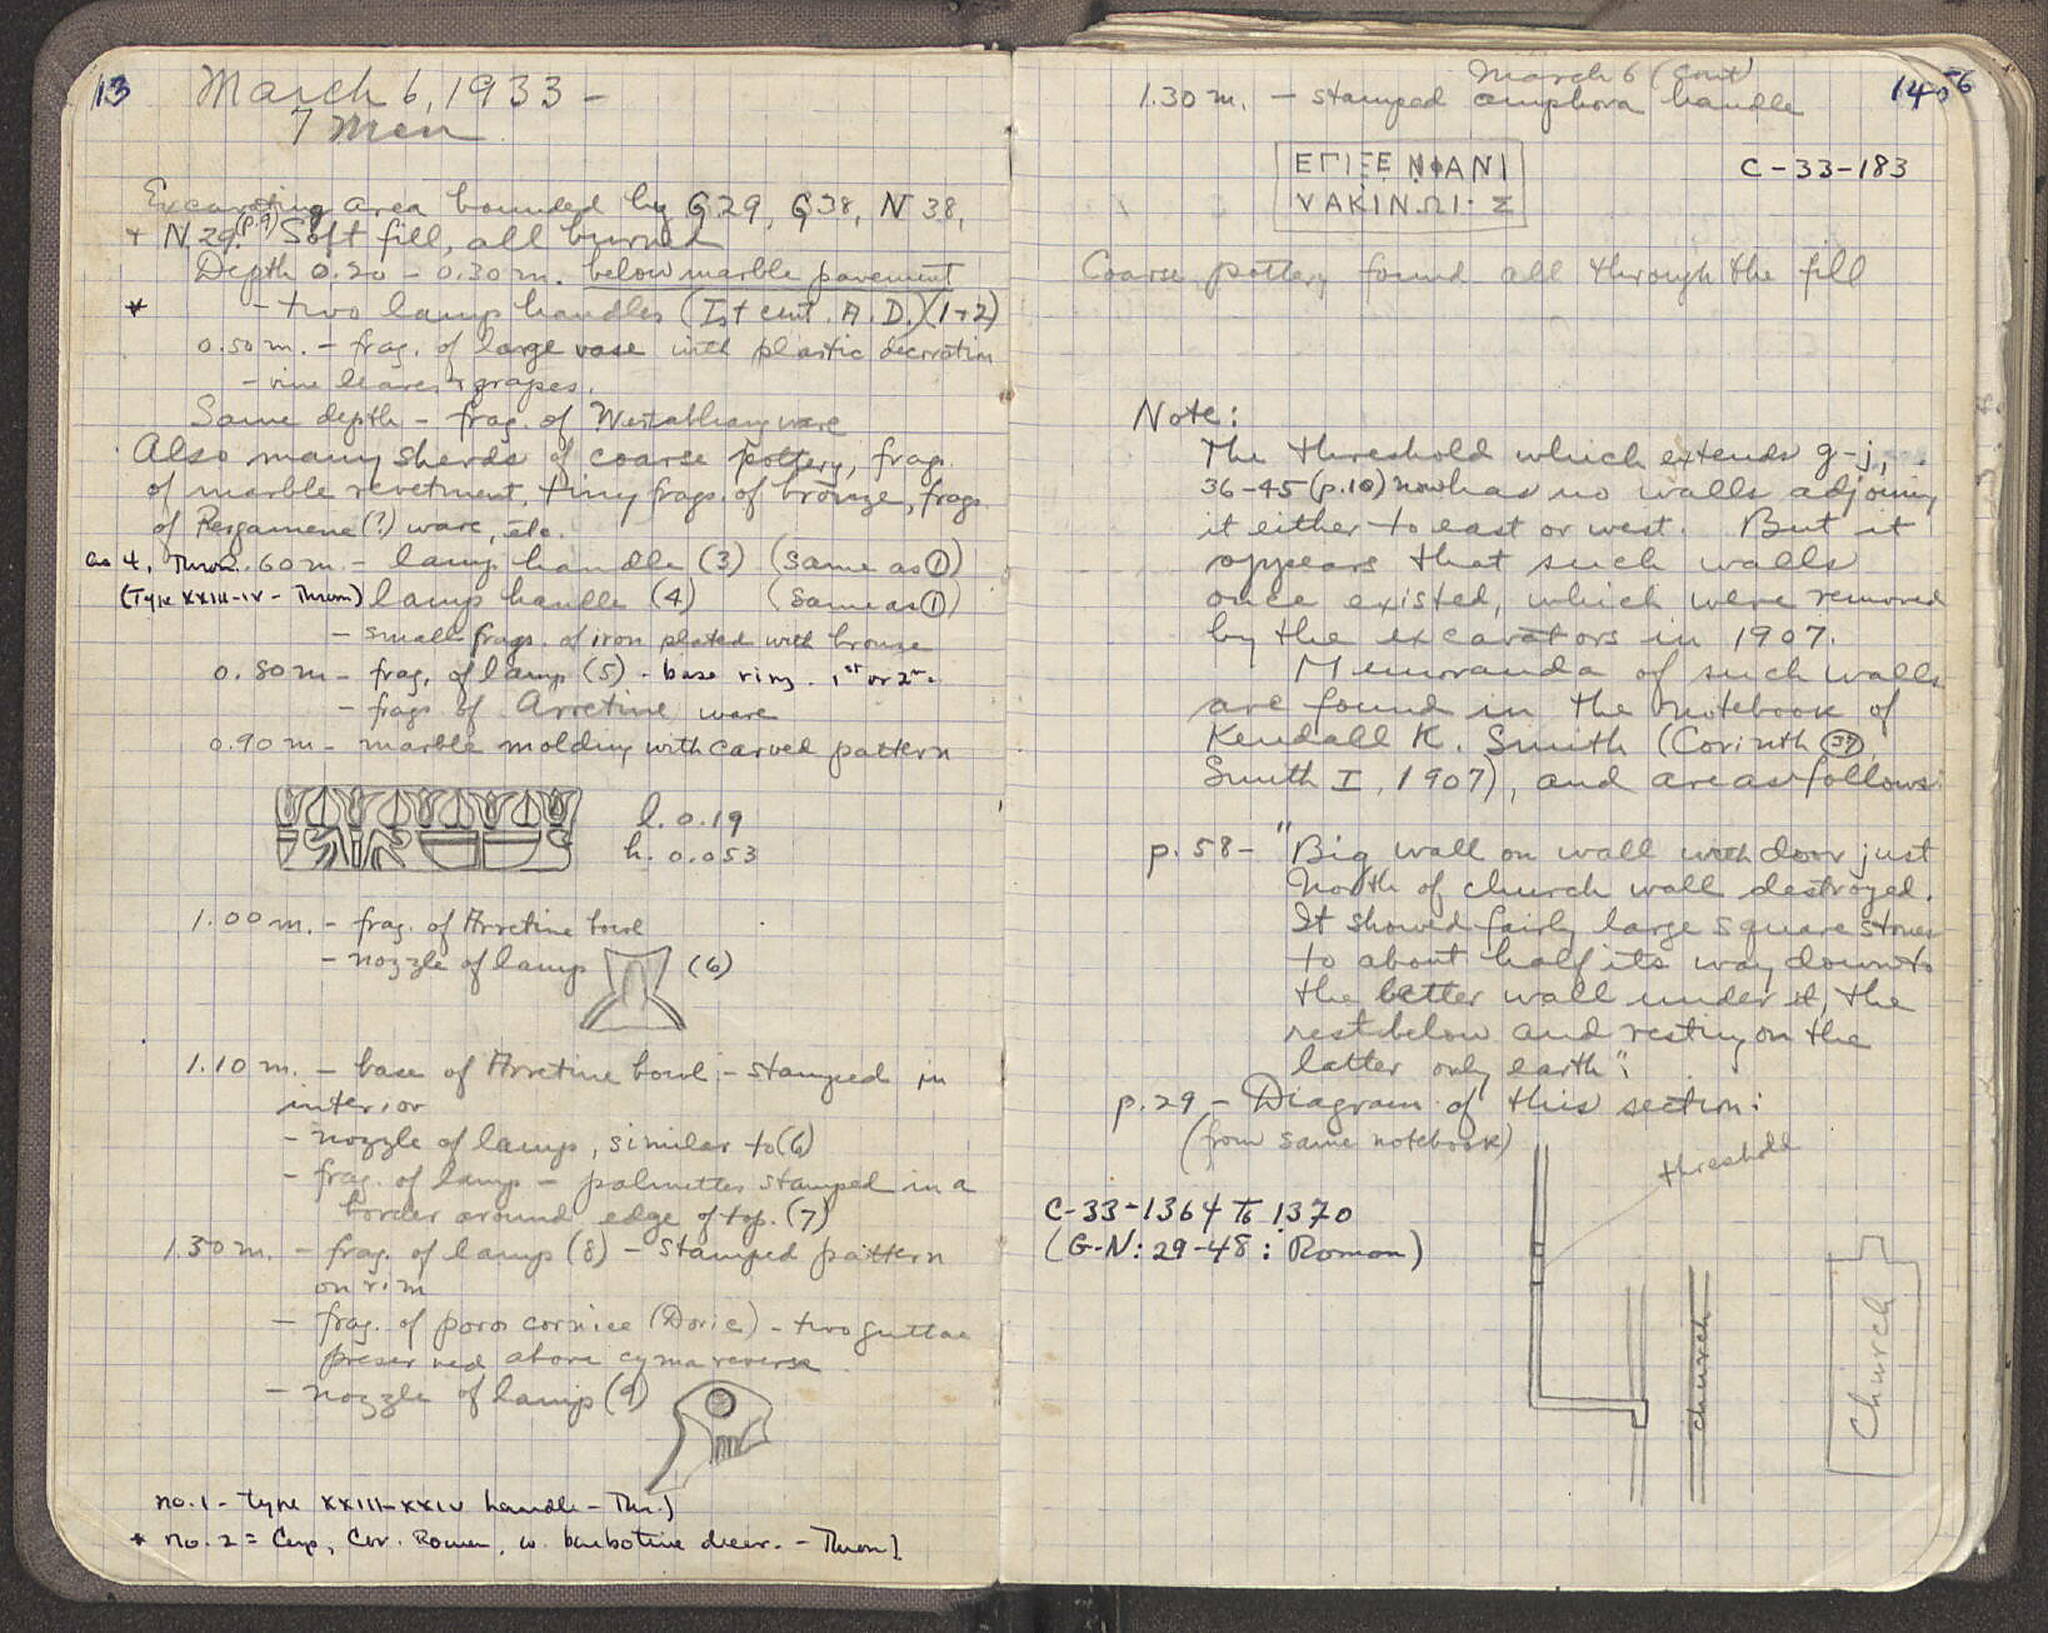 13
March 6, 1933 -
7 Men
Excavating area bounded by G29, G38, N38,
+ N29. (p.9) Soft fill, all burned
Depth 0.20 - 0.30 m. below marble pavement
* - two lamp handles (Ist cent. A.D.) (1+2)
0.50 m. - frag. of large vase with plastic decoration
- vine leaves + grapes.
Same depth - frag. of West Slope ware
Also many sherds of coarse pottery, frag.
of marble revetment, tiny frags. of bronze, frags.
of Pergamene (?) ware, etc.
as 4, Thron. .60 m. - lamp handle (3) (same as ①)
(Type XXIII-IV - Thron) lamp handle (4) (same as ①)
- small frags. of iron plated with bronze
0.80 m - frag. of lamp (5) - base ring. 1st or 2nd.
- frags of Arretine ware
0.90 m - marble molding with carved pattern
l. 0.19
h. 0.053
1.00 m. - frag. of Arretine bowl
- nozzle of lamp (6)
1.10 m. - base of Arretine bowl - stamped in
interior
- nozzle of lamp, similar to (6)
- frag. of lamp - palmettes stamped in a
border around edge of top. (7)
1.30 m. - frag. of lamp (8) - stamped pattern
on rim
- frag. of poros cornice (Doric) - two guttae
preserved above cyma reversa
- nozzle of lamp (9)
no. 1 - Type XXIII-XXIV handle - Thr.]
* no. 2 = Cup, Cor. Roman, w. barbotine decor. - Thron]
March 6 (cont)
14
56
1.30 m. - stamped amphora handle
ΕΠΙΞΕΝΟΦΑΝΙ
ΥΑΚΙΝΩΙ· Σ
C-33-183
Coarse pottery found all through the fill
Note:
The threshold which extends g-j,
36-45 (p.10) now has no walls adjoining
it either to east or west. But it
appears that such walls
once existed, which were removed
by the excavators in 1907.
Memoranda of such walls
are found in the notebook of
Kendall K. Smith (Corinth 37,
Smith I, 1907), and are as follows:
p. 58 - "Big wall on wall with door just
North of church wall destroyed.
It showed fairly large square stones
to about half its way down to
the better wall under it, the
rest below and resting on the
latter only earth".
p. 29 - Diagram of this section:
(from same notebook)
threshold
C-33-1364 To 1370
(G-N: 29-48: Roman)
church
Church